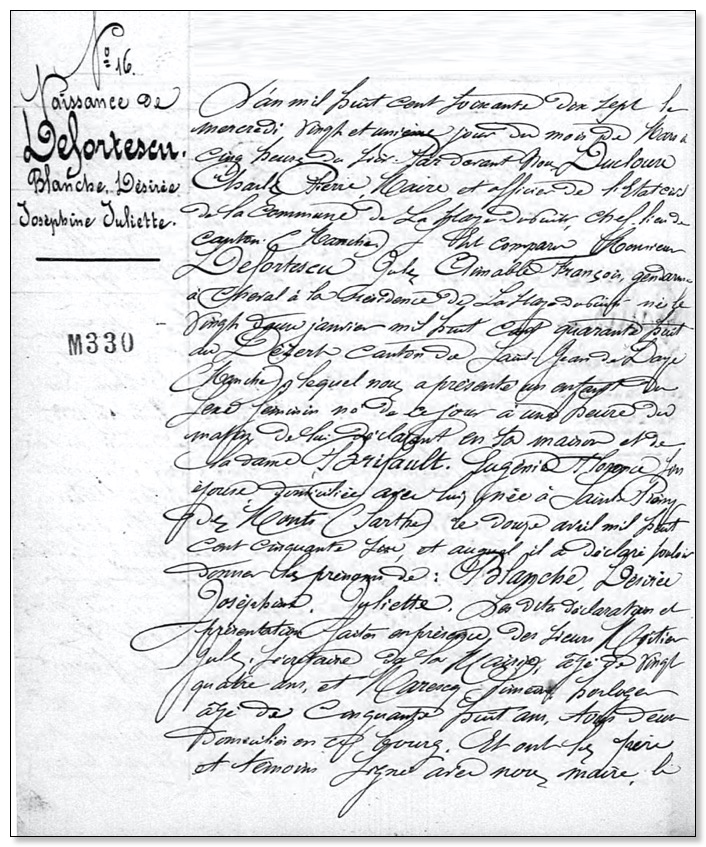 No 16.
Naissance de
Defortescu.
Blanche, Désirée
Joséphine Juliette.
M330
L'an mil huit cent soixante dix sept le
mercredi vingt et unième jour du mois de Mars à
cinq heures du soir. Par devant Nous Duclour
Charles Pierre, Maire et officier de l'Etat civil
de la commune de La Haye-du-puits, chef-lieu de
canton (Manche) Est comparu Monsieur
Defortescu Jules Aimable François, gendarme
à cheval à la résidence de La Haye-du-puits né le
vingt deux janvier mil huit cent quarante huit
au Dézert canton de Saint-Jean de Daye
(Manche), lequel nous a présenté un enfant du
sexe féminin né de ce jour à une heure du
matin de lui déclarant en sa maison et de
Madame Brifault. Eugénie Florence son
épouse domiciliée avec lui, née à Saint
des Monts (Sarthe) le douze avril mil huit
cent cinquante six, et auquel il a déclaré vouloir
donner les prénoms de : Blanche, Désirée
Joséphine, Juliette. Les dites déclaration et
présentation faites en présence des sieurs
Jules, secrétaire de la Mairie, âgé de vingt
quatre ans, et Marescq horloger
âgé de cinquante huit ans, tous deux
domiciliés en ce bourg. Et ont les père
et témoins signé avec nous, maire, le